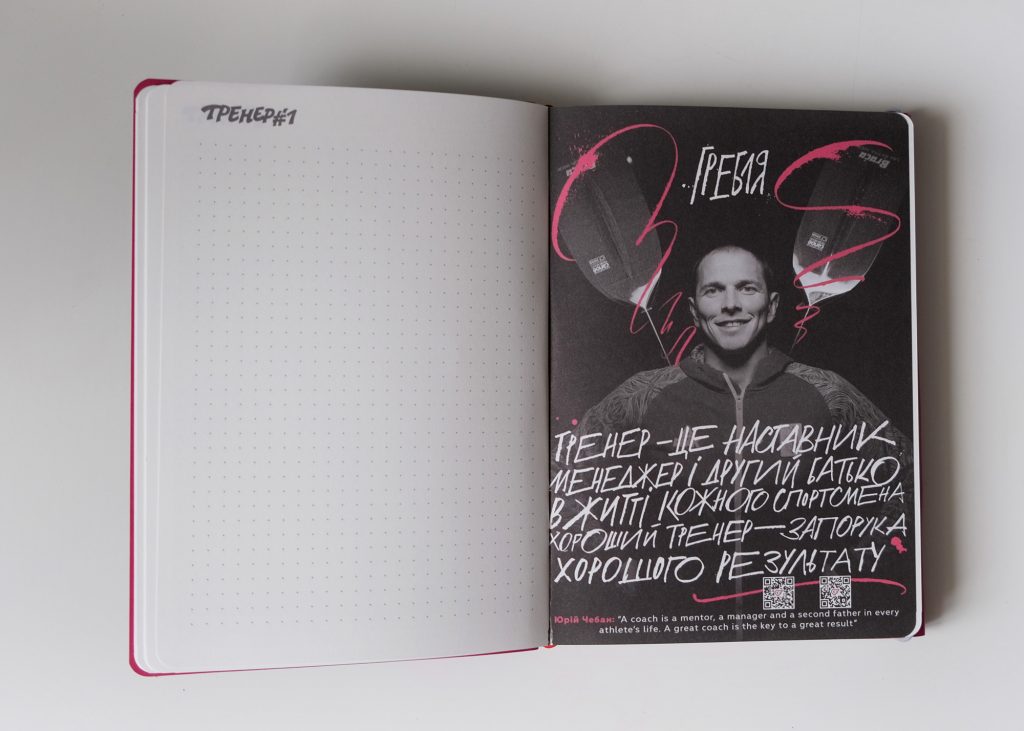 ТРЕНЕР#1
ГРЕБЛЯ
Braca
ТРЕНЕР – ЦЕ НАСТАВНИК
МЕНЕДЖЕР І ДРУГИЙ БАТЬКО
В ЖИТТІ КОЖНОГО СПОРТСМЕНА
ХОРОШИЙ ТРЕНЕР — ЗАПОРУКА
ХОРОШОГО РЕЗУЛЬТАТУ
Юрій Чебан: “A coach is a mentor, a manager and a second father in every
athlete’s life. A great coach is the key to a great result”